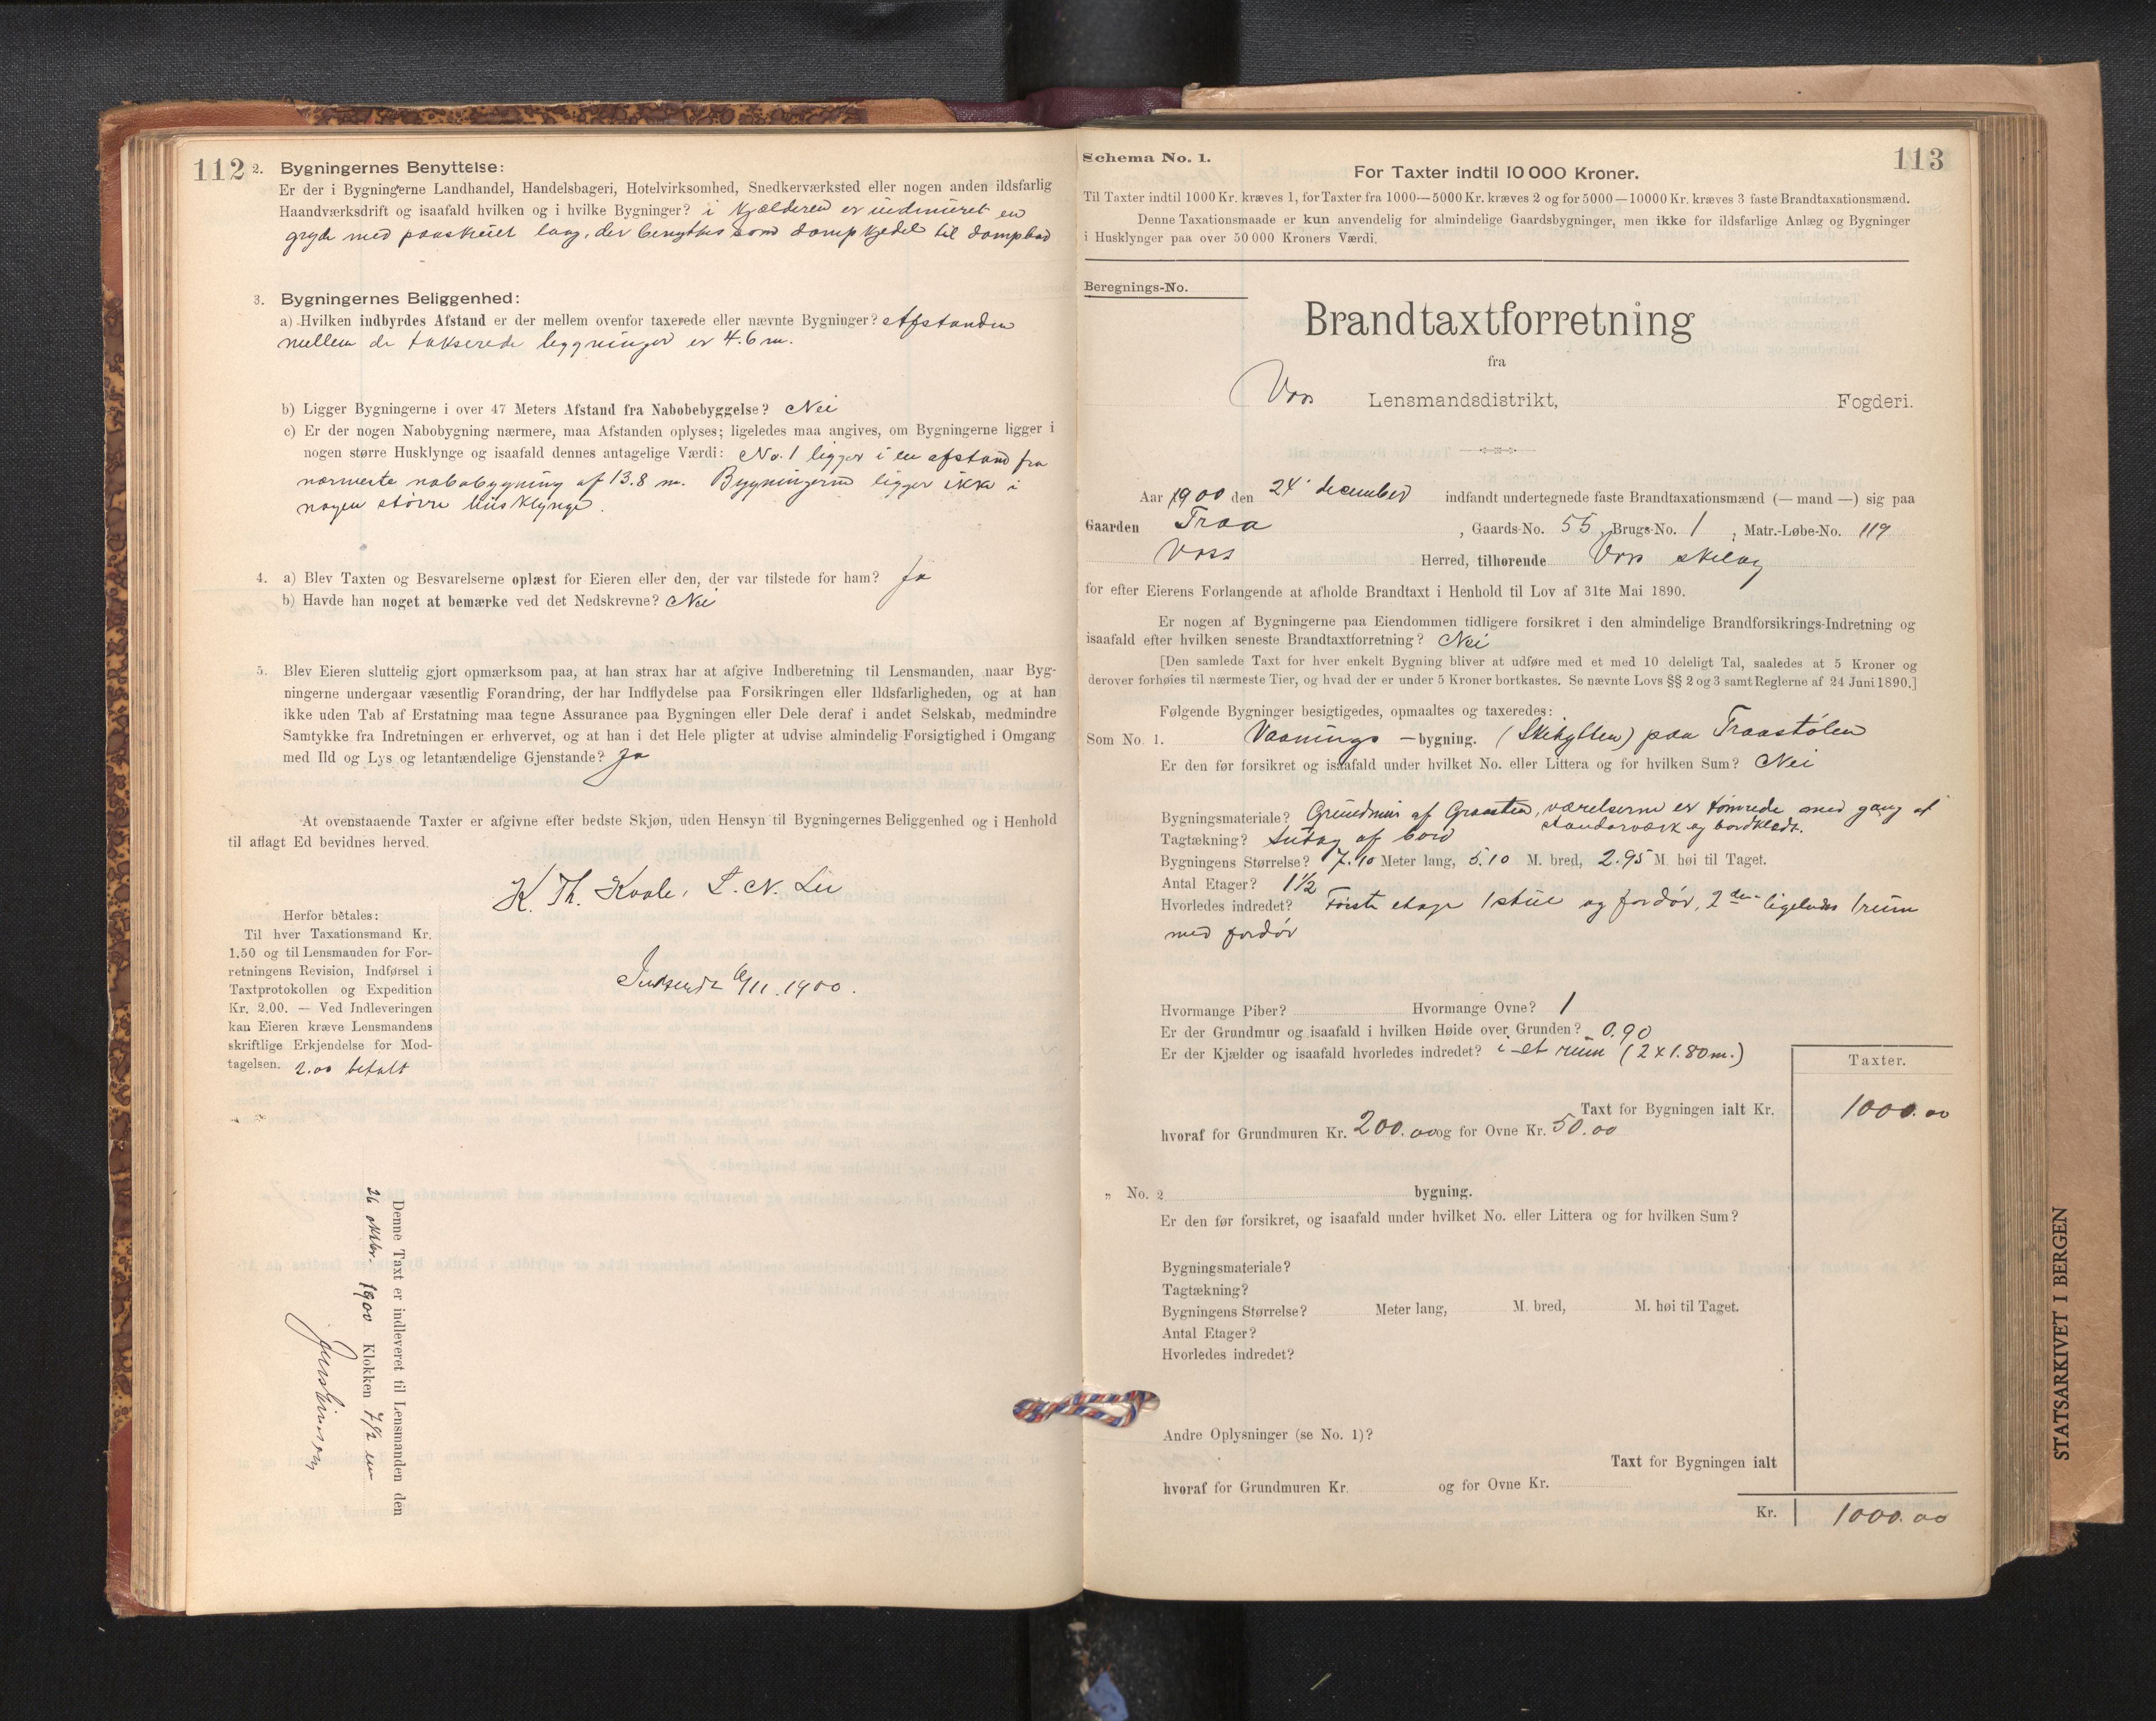 112
2. Bygningernes Benyttelse:
Er der i Bygningerne Landhandel, Handelsbageri, Hotelvirksomhed, Snedkerværksted eller nogen anden ildsfarlig
Haandværksdrift og isaafald hvilken og i hvilke Bygninger? i kjælderen er indmuret en
gryde med paaskruet laag, der benyttes som dampkjedel til dampbad
3. Bygningernes Beliggenhed:
a) Hvilken indbyrdes Afstand er der mellem ovenfor taxerede eller nævnte Bygninger? Afstanden
mellem de takserede bygninger er 4.6 m.
b) Ligger Bygningerne i over 47 Meters Afstand fra Nabobebyggelse? Nei
c) Er der nogen Nabobygning nærmere, maa Afstanden oplyses; ligeledes maa angives, om Bygningerne ligger i
nogen større Husklynge og isaafald dennes antagelige Værdi: No. 1 ligger i en afstand fra
nærmeste nabobygning af 13.8 m. Bygningerne ligger ikke i
nogen större husklynge.
4. a) Blev Taxten og Besvarelserne oplæst for Eieren eller den, der var tilstede for ham? Ja
b) Havde han noget at bemærke ved det Nedskrevne? Nei
5. Blev Eieren sluttelig gjort opmærksom paa, at han strax har at afgive Indberetning til Lensmanden, naar Byg-
ningerne undergaar væsentlig Forandring, der har Indflydelse paa Forsikringen eller Ildsfarligheden, og at han
ikke uden Tab af Erstatning maa tegne Assurance paa Bygningen eller Dele deraf i andet Selskab, medmindre
Samtykke fra Indretningen er erhvervet, og at han i det Hele pligter at udvise almindelig Forsigtighed i Omgang
med Ild og Lys og letantændelige Gjenstande? Ja
At ovenstaaende Taxter er afgivne efter bedste Skjøn, uden Hensyn til Bygningernes Beliggenhed og i Henhold
til aflagt Ed bevidnes herved.
K. Th. Kvale, L. N. Lee
Herfor betales:
Til hver Taxationsmand Kr.
1.50 og til Lensmanden for For-
retningens Revision, Indførsel i
Taxtprotokollen og Expedition
Kr. 2.00. — Ved Indleveringen
kan Eieren kræve Lensmandens
skriftlige Erkjendelse for Mod-
tagelsen. 2.00 betalt
Indsendt 6/11 1900.
Denne Taxt er indleveret til Lensmanden den
26 oktbr. 1900 Klokken 7 1/2 em
Schema No. 1.
113
For Taxter indtil 10 000 Kroner.
Til Taxter indtil 1000 Kr. kræves 1, for Taxter fra 1000—5000 Kr. kræves 2 og for 5000—10000 Kr. kræves 3 faste Brandtaxationsmænd.
Denne Taxationsmaade er kun anvendelig for almindelige Gaardsbygninger, men ikke for ildsfarlige Anlæg og Bygninger
i Husklynger paa over 50 000 Kroners Værdi.
Beregnings-No.
Brandtaxtforretning
fra
Voss Lensmandsdistrikt, Fogderi.
Aar 1900 den 24. december indfandt undertegnede faste Brandtaxationsmænd (— mand —) sig paa
Gaarden Traa, Gaards-No. 55, Brugs-No. 1, Matr.-Løbe-No. 119
Voss Herred, tilhørende Voss skilag
for efter Eierens Forlangende at afholde Brandtaxt i Henhold til Lov af 31te Mai 1890.
Er nogen af Bygningerne paa Eiendommen tidligere forsikret i den almindelige Brandforsikrings-Indretning og
isaafald efter hvilken seneste Brandtaxtforretning? Nei
[Den samlede Taxt for hver enkelt Bygning bliver at udføre med et med 10 deleligt Tal, saaledes at 5 Kroner og
derover forhøies til nærmeste Tier, og hvad der er under 5 Kroner bortkastes. Se nævnte Lovs §§ 2 og 3 samt Reglerne af 24 Juni 1890.]
Følgende Bygninger besigtigedes, opmaaltes og taxeredes:
Som No. 1. Vaanings —bygning. (Skihytten) paa Traastølen
Er den før forsikret og isaafald under hvilket No. eller Littera og for hvilken Sum? Nei
Bygningsmateriale? Grundmur af Graasten, værelserne er tömrede med gang af
standerværk og bordklædt.
Tagtækning? Sutag af bord
Bygningens Størrelse? 7.10 Meter lang, 5.10 M. bred, 2.95 M. høi til Taget.
Antal Etager? 1 1/2
Hvorledes indredet? Förste etage 1 stue og fordör, 2den ligeledes 1 rum
med fordör
Hvormange Piber? Hvormange Ovne? 1
Er der Grundmur og isaafald i hvilken Høide over Grunden? 0.90
Er der Kjælder og isaafald hvorledes indredet? i et rum (2 x 1.80 m.)
Taxter.
Taxt for Bygningen ialt Kr. 1000.00
hvoraf for Grundmuren Kr. 200.00 og for Ovne Kr. 50.00
„ No. 2 bygning.
Er den før forsikret, og isaafald under hvilket No. eller Littera og for hvilken Sum?
Bygningsmateriale?
Tagtækning?
Bygningens Størrelse? Meter lang, M. bred, M. høi til Taget.
Antal Etager?
Hvorledes indredet?
Andre Oplysninger (se No. 1)?
Taxt for Bygningen ialt
hvoraf for Grundmuren Kr. og for Ovne Kr.
Kr. 1000.00
STATSARKIVET I BERGEN